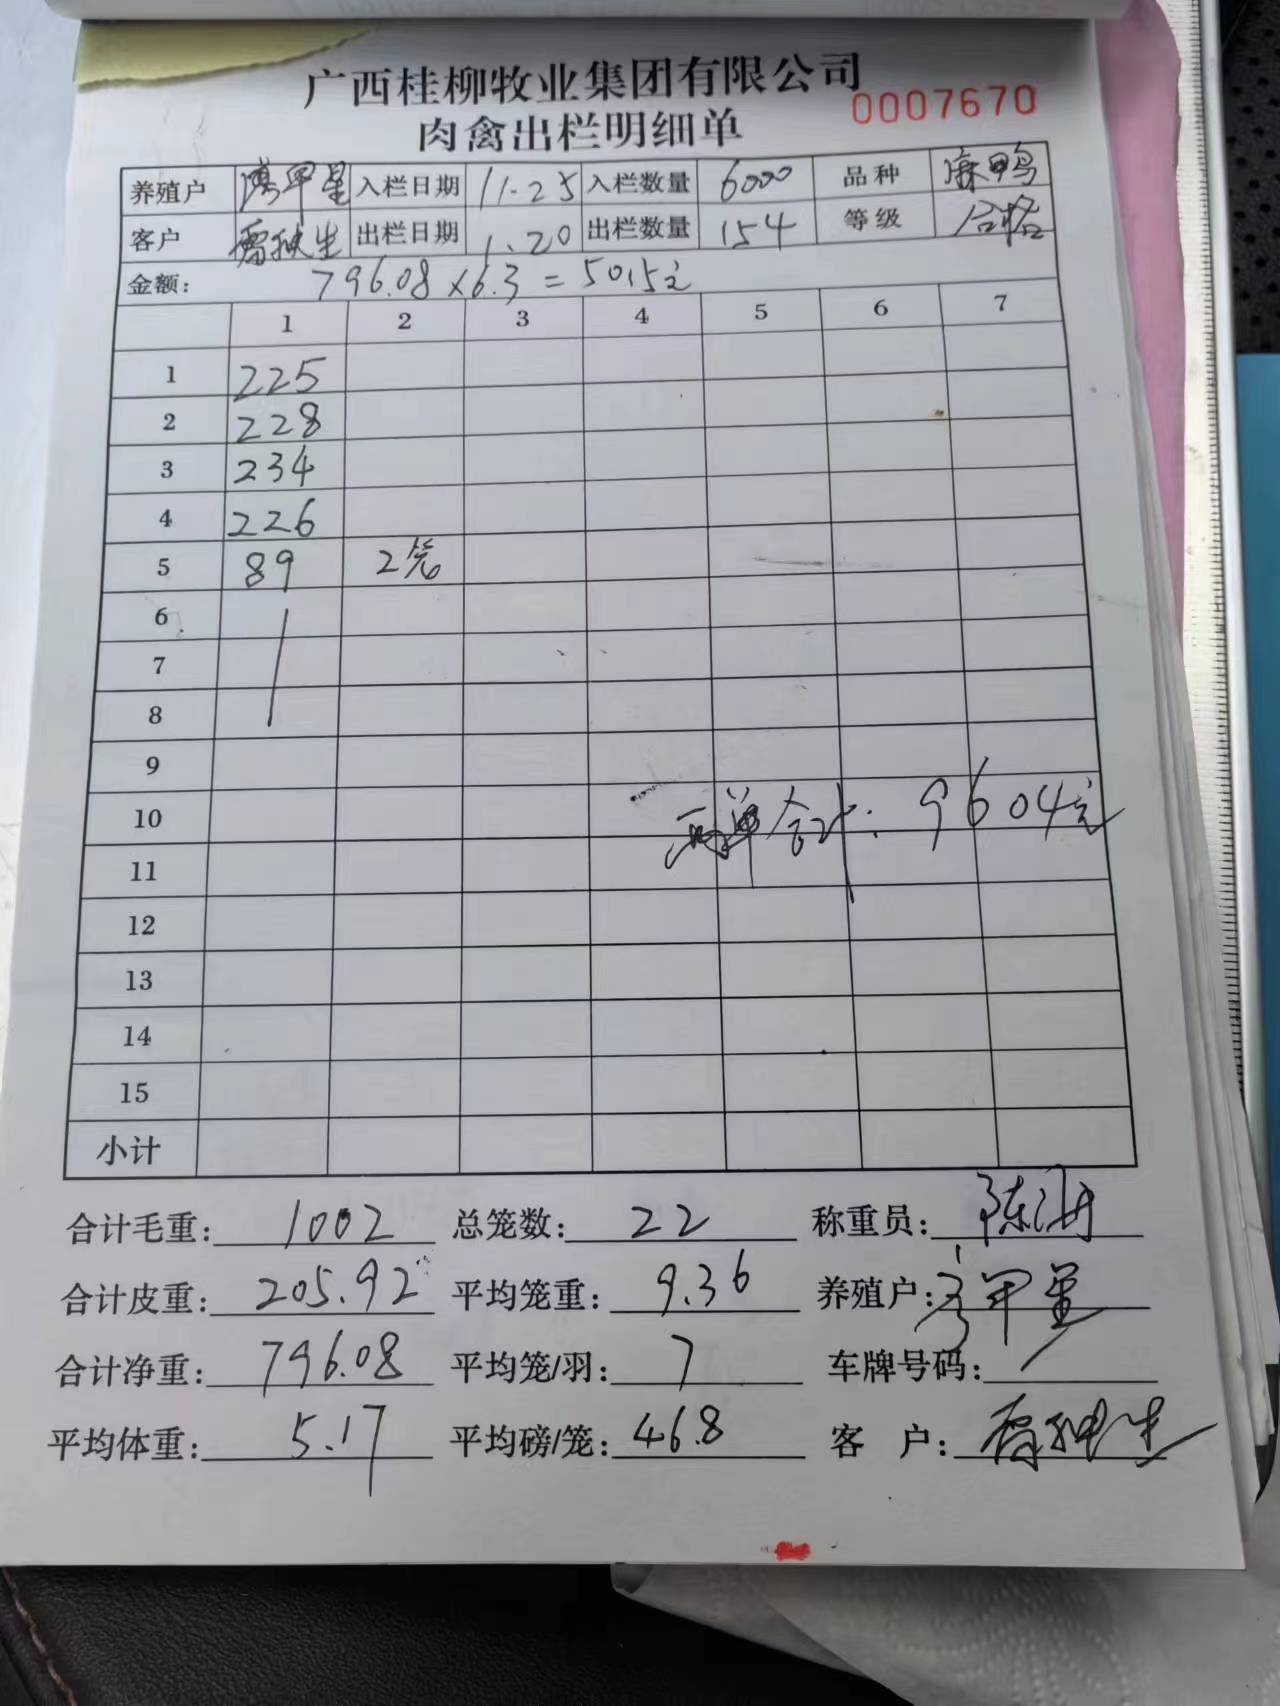 广西桂柳牧业集团有限公司
0007670
肉禽出栏明细单
养殖户 甲星 入栏日期 11.25 入栏数量 6000 品种 麻鸭
客户 生 出栏日期 1.20 出栏数量 154 等级 合格
金额: 796.08×6.3=5015元
1 2 3 4 5 6 7
1 225
2 228
3 234
4 226
5 89 2笼
6
7
8
9
10 两单合计: 9604元
11
12
13
14
15
小计
合计毛重: 1002 总笼数: 22 称重员: 陈
合计皮重: 205.92 平均笼重: 9.36 养殖户: 甲星
合计净重: 796.08 平均笼/羽: 7 车牌号码:
平均体重: 5.17 平均磅/笼: 46.8 客户: 生